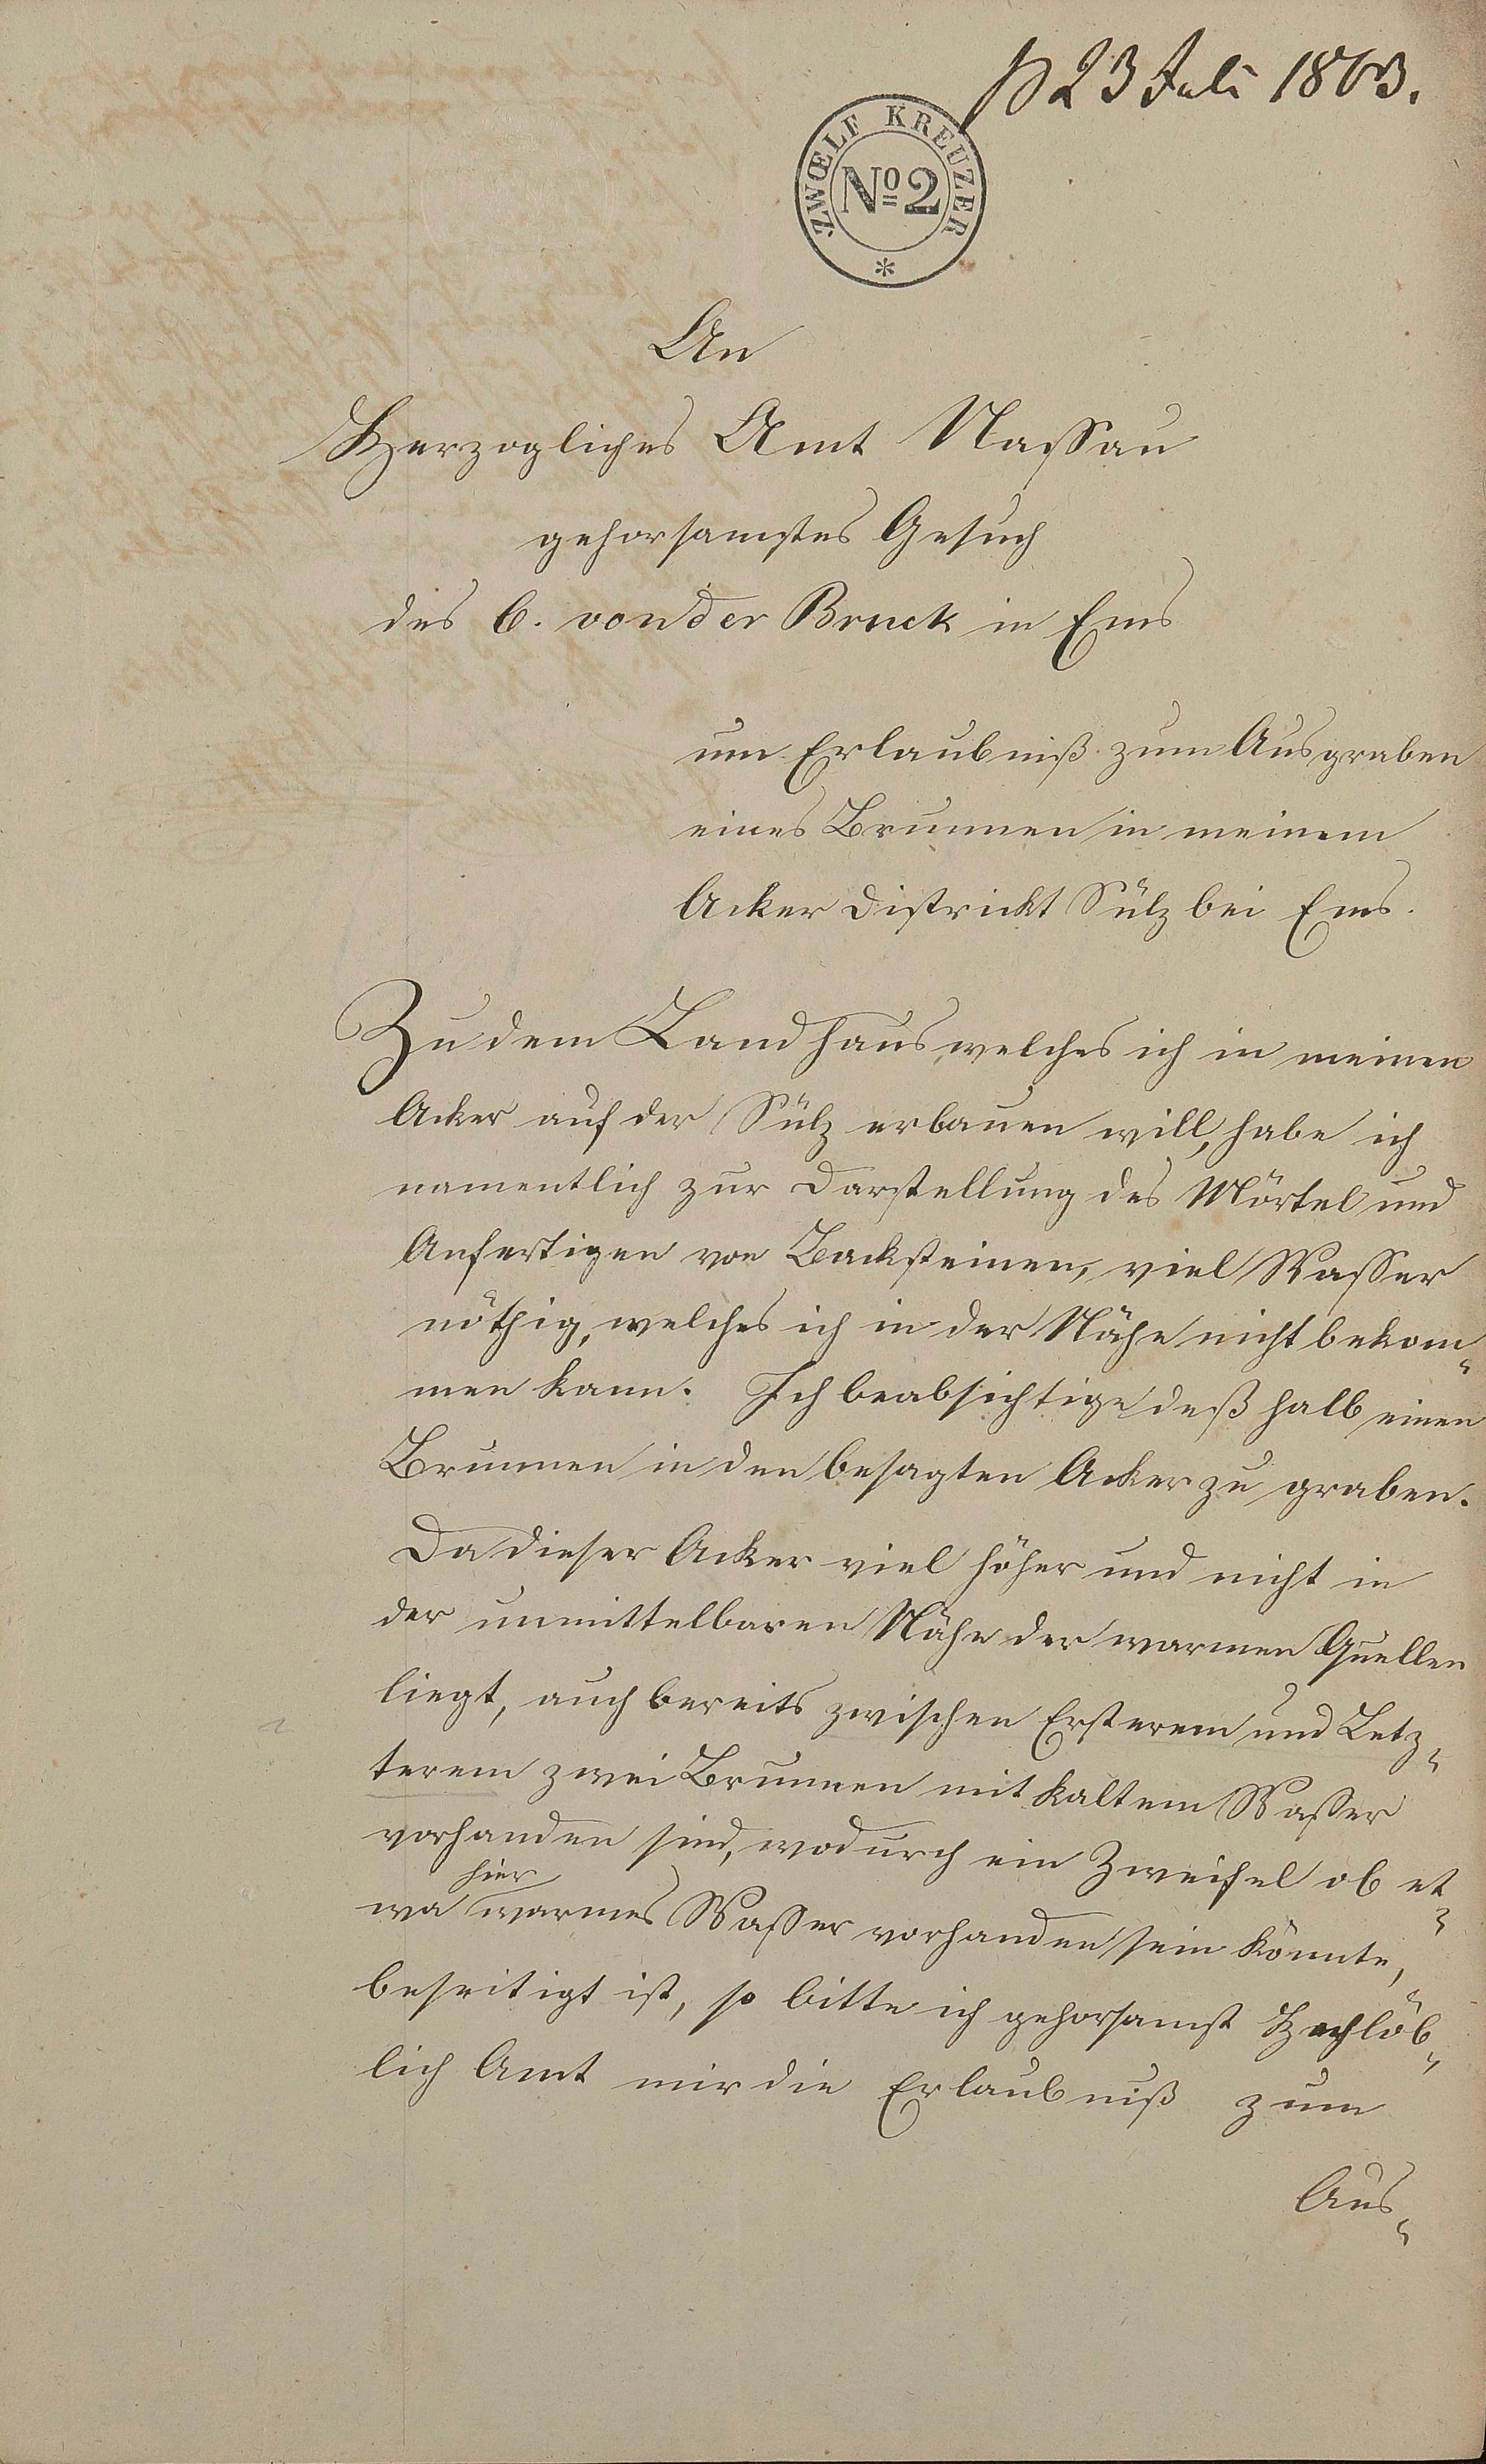 23 Juli 1863.
ZWŒLF KREUZER
No 2
An
Herzogliches Amt Nassau
gehorsamstes Gesuch
des C. von der Bruck in Ems
um Erlaubniß zum Ausgraben
eines Brunnen in meinem
Acker District Sülz bei Ems.
Zu dem Landhaus, welches ich in meinen
Acker auf der Sülz erbauen will, habe ich
namentlich zur Darstellung des Mörtel und
Anfertigen von Backsteinen, viel Wasser
nöthig, welches ich in der Nähe nicht bekom-
men kann. Ich beabsichtige deßhalb einen
Brunnen in den besagten Acker zu graben.
Da dieser Acker viel höher und nicht in
der unmittelbaren Nähe der warmen Quellen
liegt, auch bereits zwischen Ersterem und Letz-
terem zwei Brunnen mit kaltem Wasser
vorhanden sind, wodurch ein Zweifel ob et-
hier
wa warmes Wasser vorhanden sein könnte,
beseitigt ist, so bitte ich gehorsamst Hochlöb-
lich Amt mir die Erlaubniß zum
Aus-